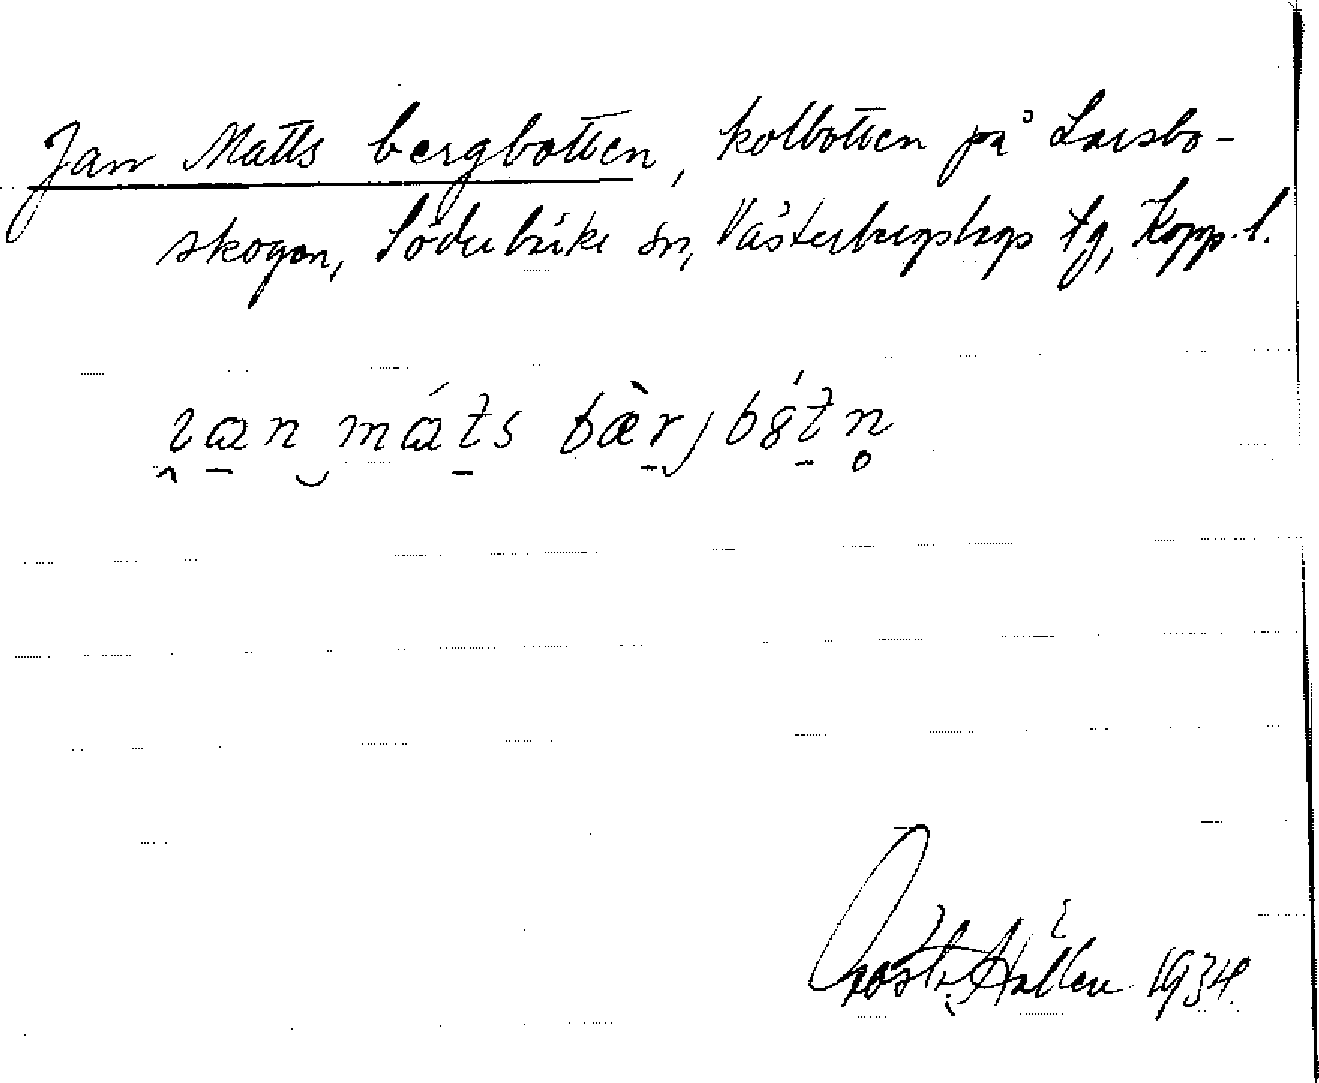 Jan Matts bergbotten, kolbotten på Larsbo-
skogen, Söderbärke sn, Västerbergslags fg, Kopp. l.
ɪan máts bæ̀rjbótn̥
1934.